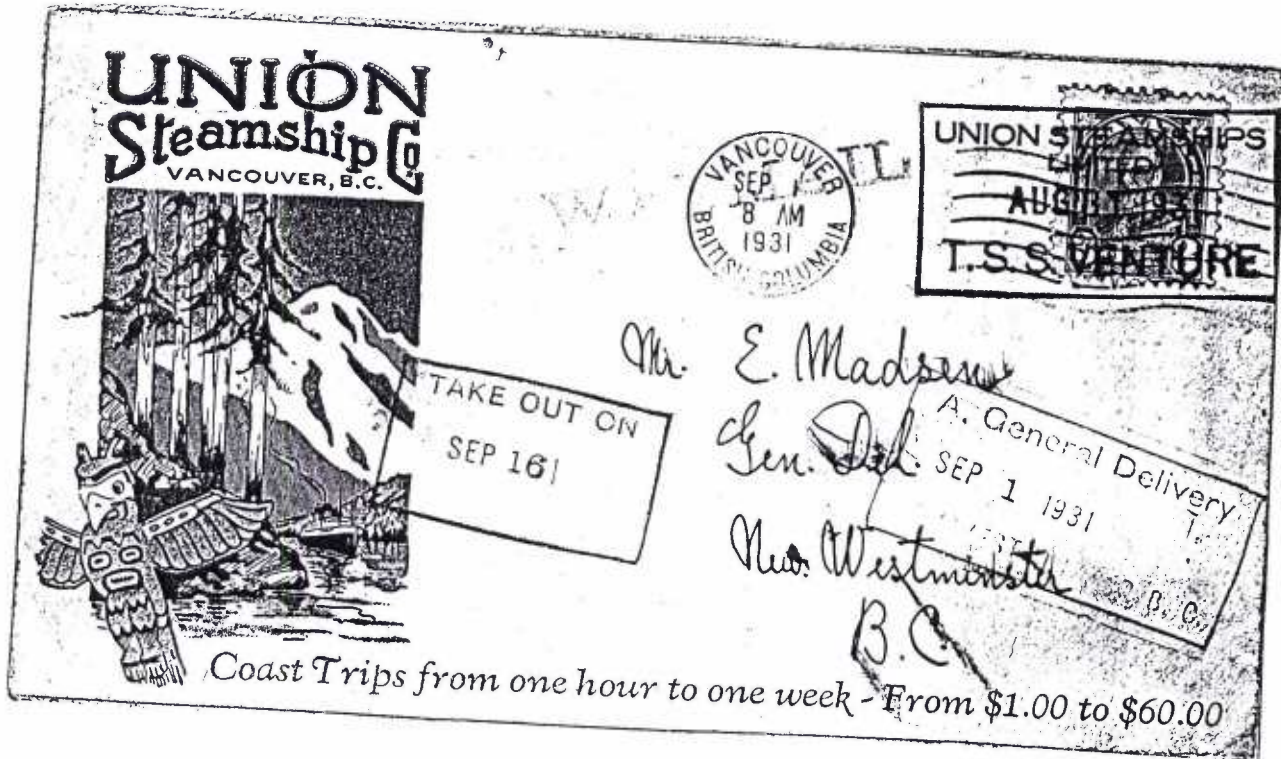 UNION
Steamship Co.
VANCOUVER, B.C.
VANCOUVER
SEP 1
8 AM
1931
BRITISH COLUMBIA
UNION STEAMSHIPS
LIMITED
AUGUST 1931
T.S.S. VENTURE
Mr. E. Madsen
Gen. Del.
New Westminster
B.C.
TAKE OUT ON
SEP 16
A. General Delivery
SEP 1 1931
B.C.
Coast Trips from one hour to one week - From $1.00 to $60.00